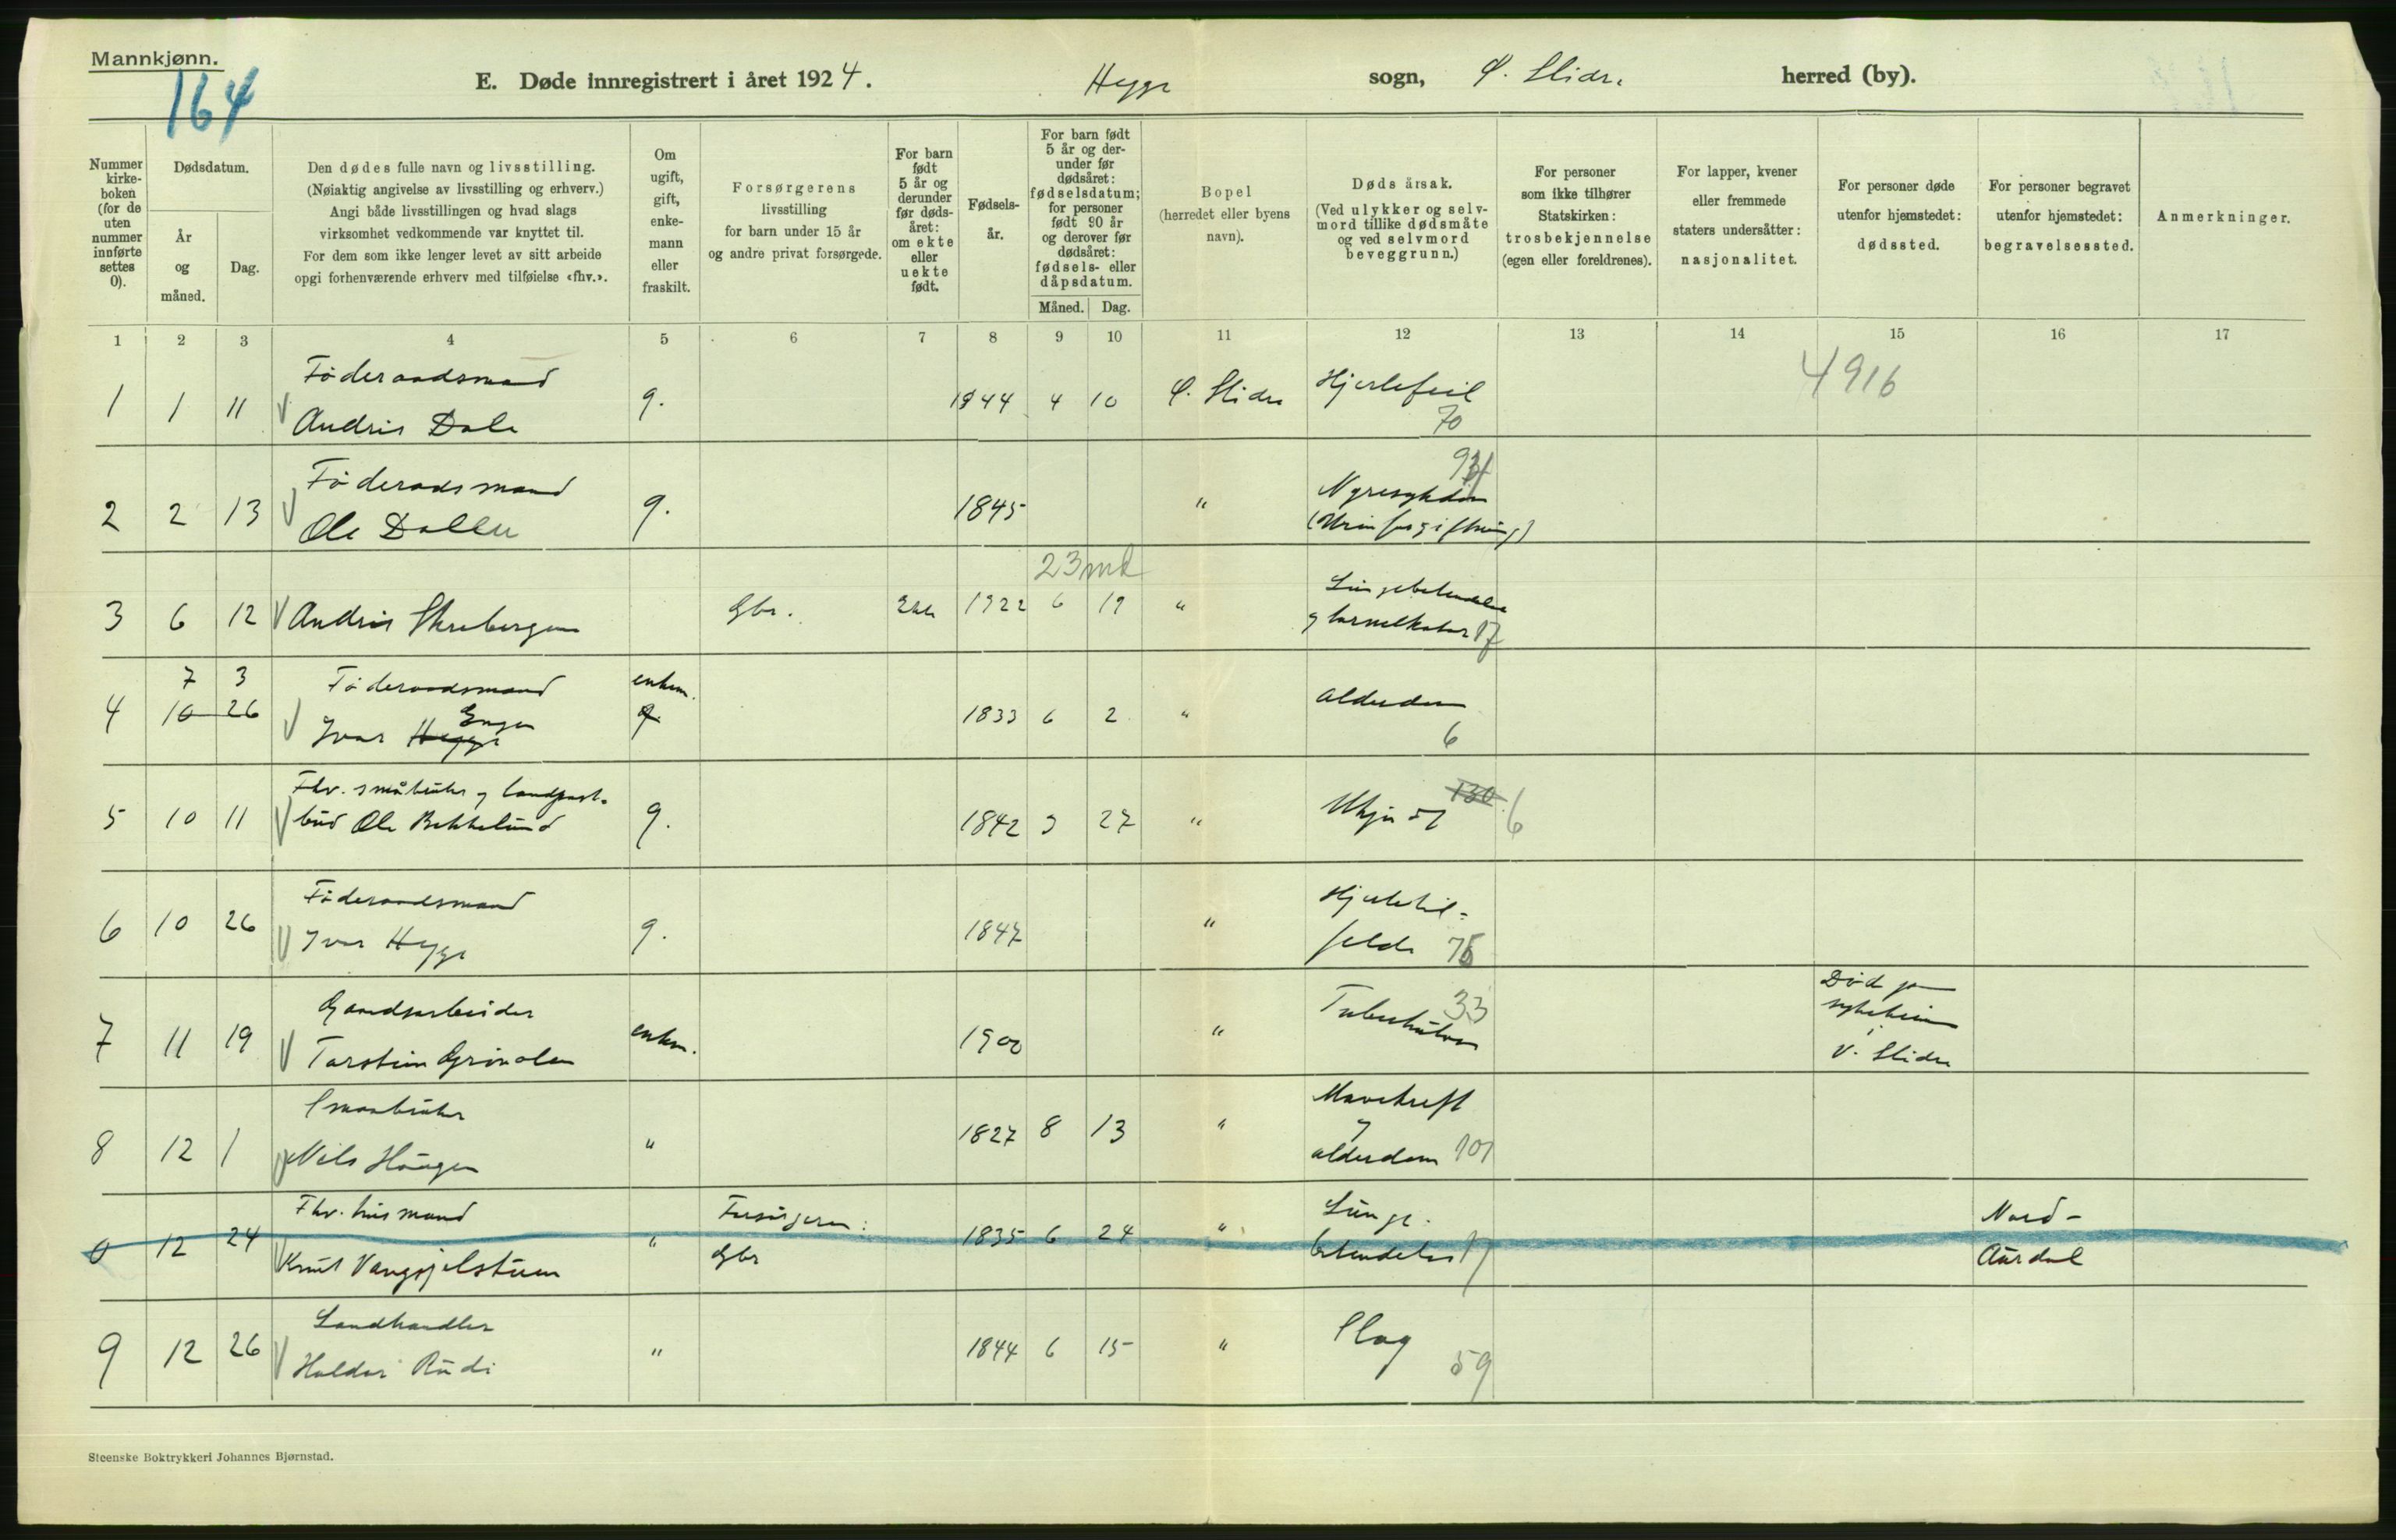 Mannkjønn.
164
E. Døde innregistrert i året 1924. Hegge sogn, Ø. Slidre herred (by).
Nummer kirke-boken (for de uten nummer innførte settes 0).
Dødsdatum.
År og måned.
Dag.
Den dødes fulle navn og livsstilling.
(Nøiaktig angivelse av livsstilling og erhverv.)
Angi både livsstillingen og hvad slags
virksomhet vedkommende var knyttet til.
For dem som ikke lenger levet av sitt arbeide
opgi forhenværende erhverv med tilføielse «fhv.».
Om ugift, gift, enke-mann eller fraskilt.
Forsørgerens
livsstilling
for barn under 15 år
og andre privat forsørgede.
For barn født 5 år og derunder før døds-året: om ekte eller uekte født.
Fødsels-år.
For barn født 5 år og der-under før dødsåret: fødselsdatum; for personer født 90 år og derover før dødsåret: fødsels- eller dåpsdatum.
Måned. Dag.
Bopel
(herredet eller byens
navn).
Dødsårsak.
(Ved ulykker og selv-
mord tillike dødsmåte
og ved selvmord
beveggrunn.)
For personer
som ikke tilhører
Statskirken:
trosbekjennelse
(egen eller foreldrenes).
For lapper, kvener
eller fremmede
staters undersåtter:
nasjonalitet.
For personer døde
utenfor hjemstedet:
dødssted.
For personer begravet
utenfor hjemstedet:
begravelsessted.
Anmerkninger.
1 2 3 4 5 6 7 8 9 10 11 12 13 14 15 16 17
4916
Føderaadsmand
1 1 11 V Andris Dale g. 1844 4 10 Ø. Slidre Hjertefeil
70
Føderaadsmand 93
2 2 13 V Ole Dallen g. 1845 " Nyresykdom
(Urinforgiftning)
23 md
3 6 12 V Andris Skrebergene Gbr. Ekte 1922 6 19 " Lungebetendelse
og tarmkatar 17
7 3 Føderaadsmand enkem.
4 10 26 V Ivar Hegge Engen g. 1833 6 2 " Alderdom
6
Fhv. småbruker og landpost-
5 10 11 V bud Ole Bekkelund g. 1842 3 27 " Ukjent 130 6
Føderaadsmand
6 10 26 V Ivar Hegge g. 1847 " Hjertetil-
felde 75
Gaardsarbeider 33
7 11 19 V Torstein Grinolen enkem. 1900 " Tuberkulose
Død på
sykeheim
i
V. Slidre
Smaabruker
8 12 1 V Nils Haugen " 1827 8 13 " Mavekreft
og
alderdom 101
Fhv. husmand Forsørgeren:
0 12 24 V Knut Vangsjelstuen " Gbr 1835 6 24 " Lunge-
betendelse 17
Nord-
Aurdal
Landhandler
9 12 26 V Haldor Rudi " 1844 6 15 " Slag
59
Steenske Boktrykkeri Johannes Bjørnstad.